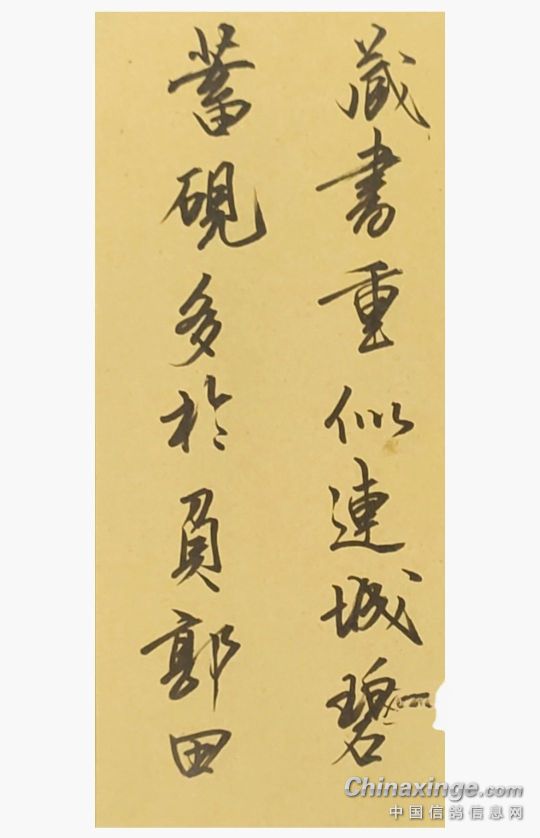 藏書重似連城碧
蓄硯多於負郭田
Chinaxinge.com
中国信鸽信息网